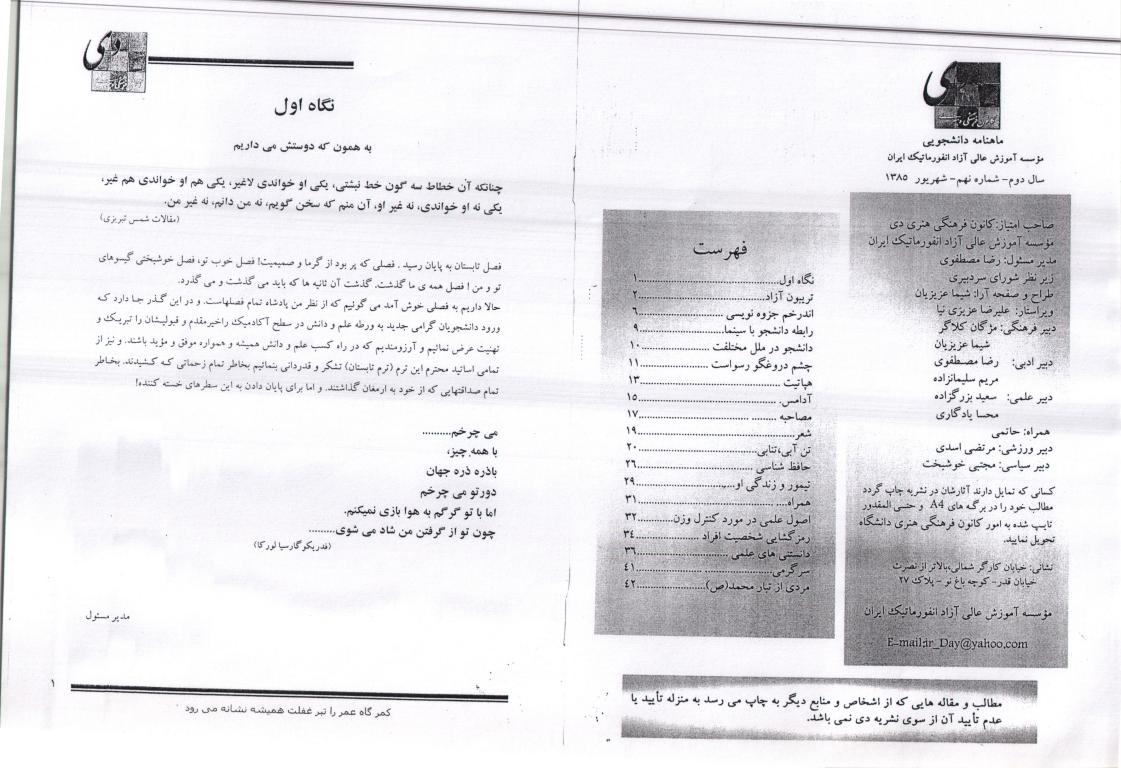 دی
ماهنامه دانشجویی
مؤسسه آموزش عالی آزاد انفورماتیک ایران
سال دوم- شماره نهم- شهریور ۱۳۸۵
صاحب امتیاز:کانون فرهنگی هنری دی
مؤسسه آموزش عالی آزاد انفورماتیک ایران
مدیر مسئول: رضا مصطفوی
زیر نظر شورای سردبیری
طراح و صفحه آرا: شیما عزیزیان
ویراستار: علیرضا عزیزی نیا
دبیر فرهنگی: مژگان کلاگر
شیما عزیزیان
دبیر ادبی: رضا مصطفوی
مریم سلیمانزاده
دبیر علمی: سعید بزرگزاده
محسا یادگاری
همراه: حاتمی
دبیر ورزشی: مرتضی اسدی
دبیر سیاسی: مجتبی خوشبخت
کسانی که تمایل دارند آثارشان در نشریه چاپ گردد
مطالب خود را در برگه های A4 و حتی المقدور
تایپ شده به امور کانون فرهنگی هنری دانشگاه
تحویل نمایند.
نشانی: خیابان کارگر شمالی،بالاتر از نصرت
خیابان قدر- کوچه باغ نو - پلاک ۲۷
مؤسسه آموزش عالی آزاد انفورماتیک ایران
E-mail:ir_Day@yahoo.com
فهرست
نگاه اول..................................۱
تریبون آزاد................................۲
اندرخم جزوه نویسی ........................۶
رابطه دانشجو با سینما.......................۹
دانشجو در ملل مختلفت ....................۱۰
چشم دروغگو رسواست ....................۱۱
هپاتیت ..................................۱۳
آدامس. .................................۱۵
مصاحبه ........ ..........................۱۷
شعر......................................۱۹
تن آبی،تنابی..............................۲۰
حافظ شناسی .............................۲۶
تیمور و زندگی او..........................۲۹
همراه.... ................................۳۱
اصول علمی در مورد کنترل وزن.............۳۲
رمزگشایی شخصیت افراد ..................۳۴
دانستنی های علمی ........................۳۶
سرگرمی.................................۴۱
مردی از تبار محمد(ص)....................۴۲
مطالب و مقاله هایی که از اشخاص و منابع دیگر به چاپ می رسد به منزله تأیید یا
عدم تأیید آن از سوی نشریه دی نمی باشد.
دی
نگاه اول
به همون که دوستش می داریم
چنانکه آن خطاط سه گون خط نبشتی، یکی او خواندی لاغیر، یکی هم او خواندی هم غیر،
یکی نه او خواندی، نه غیر او، آن منم که سخن گویم، نه من دانم، نه غیر من.
(مقالات شمس تبریزی)
فصل تابستان به پایان رسید . فصلی که پر بود از گرما و صمیمیت! فصل خوب تو، فصل خوشبختی گیسوهای
تو و من ! فصل همه ی ما گذشت. گذشت آن ثانیه ها که باید می گذشت و می گذرد.
حالا داریم به فصلی خوش آمد می گوئیم که از نظر من پادشاه تمام فصلهاست. و در این گذر جا دارد که
ورود دانشجویان گرامی جدید به ورطه علم و دانش در سطح آکادمیک راخیرمقدم و قبولیشان را تبریک و
تهنیت عرض نمائیم و آرزومندیم که در راه کسب علم و دانش همیشه و همواره موفق و مؤید باشند. و نیز از
تمامی اساتید محترم این ترم (ترم تابستان) تشکر و قدردانی بنمائیم بخاطر تمام زحماتی که کشیدند. بخاطر
تمام صداقتهایی که از خود به ارمغان گذاشتند. و اما برای پایان دادن به این سطرهای خسته کننده!
می چرخم..........
با همه چیز،
باذره ذره جهان
دورتو می چرخم
اما با تو گرگم به هوا بازی نمیکنم.
چون تو از گرفتن من شاد می شوی.........
(فدریکو گارسیا لورکا)
مدیر مسئول
۱
کمر گاه عمر را تبر غفلت همیشه نشانه می رود